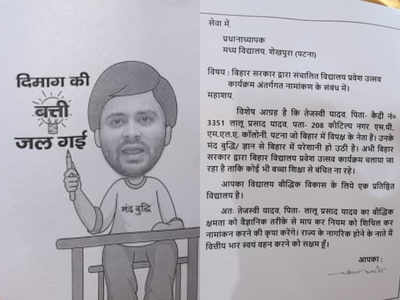 दिमाग की
बत्ती
जल गई
मंद बुद्धि
सेवा में,
प्रधानाध्यापक
मध्य विद्यालय, शेखपुरा (पटना)
विषय : बिहार सरकार द्वारा संचालित विद्यालय प्रवेश उत्सव
कार्यक्रम अंतर्गगत नामांकण के संबंध में।
महाशय,
विशेष आग्रह है कि तेजस्वी यादव, पिता- कैदी नं०
3351 लालू प्रसाद यादव, पता- 208 कौटिल्य नगर एम.पी.
एम.एल.ए. कॉलोनी, पटना जो बिहार में विपक्ष के नेता है। उनके
मंद बुद्धि/ ज्ञान से बिहार में परेशानी हो उठी है। अभी बिहार
सरकार द्वारा बिहार विद्यालय प्रवेश उत्सव कार्यक्रम चलाया जा
रहा है ताकि कोई भी बच्चा शिक्षा से बंचित ना रहे।
आपका विद्यालय बौद्धिक विकास के लिये एक प्रतिष्ठित
विद्यालय है।
अतः तेजस्वी यादव, पिता- लालू प्रसाद यादव का बौद्धिक
क्षमता को वैज्ञानिक तरीके से माप कर नियम को शिथिल कर
नामांकन करने की कृपा करेंगे। राज्य के नागरिक होने के नाते में
वित्तीय भार स्वयं वहन करने को सक्षम हूँ।
आपका :